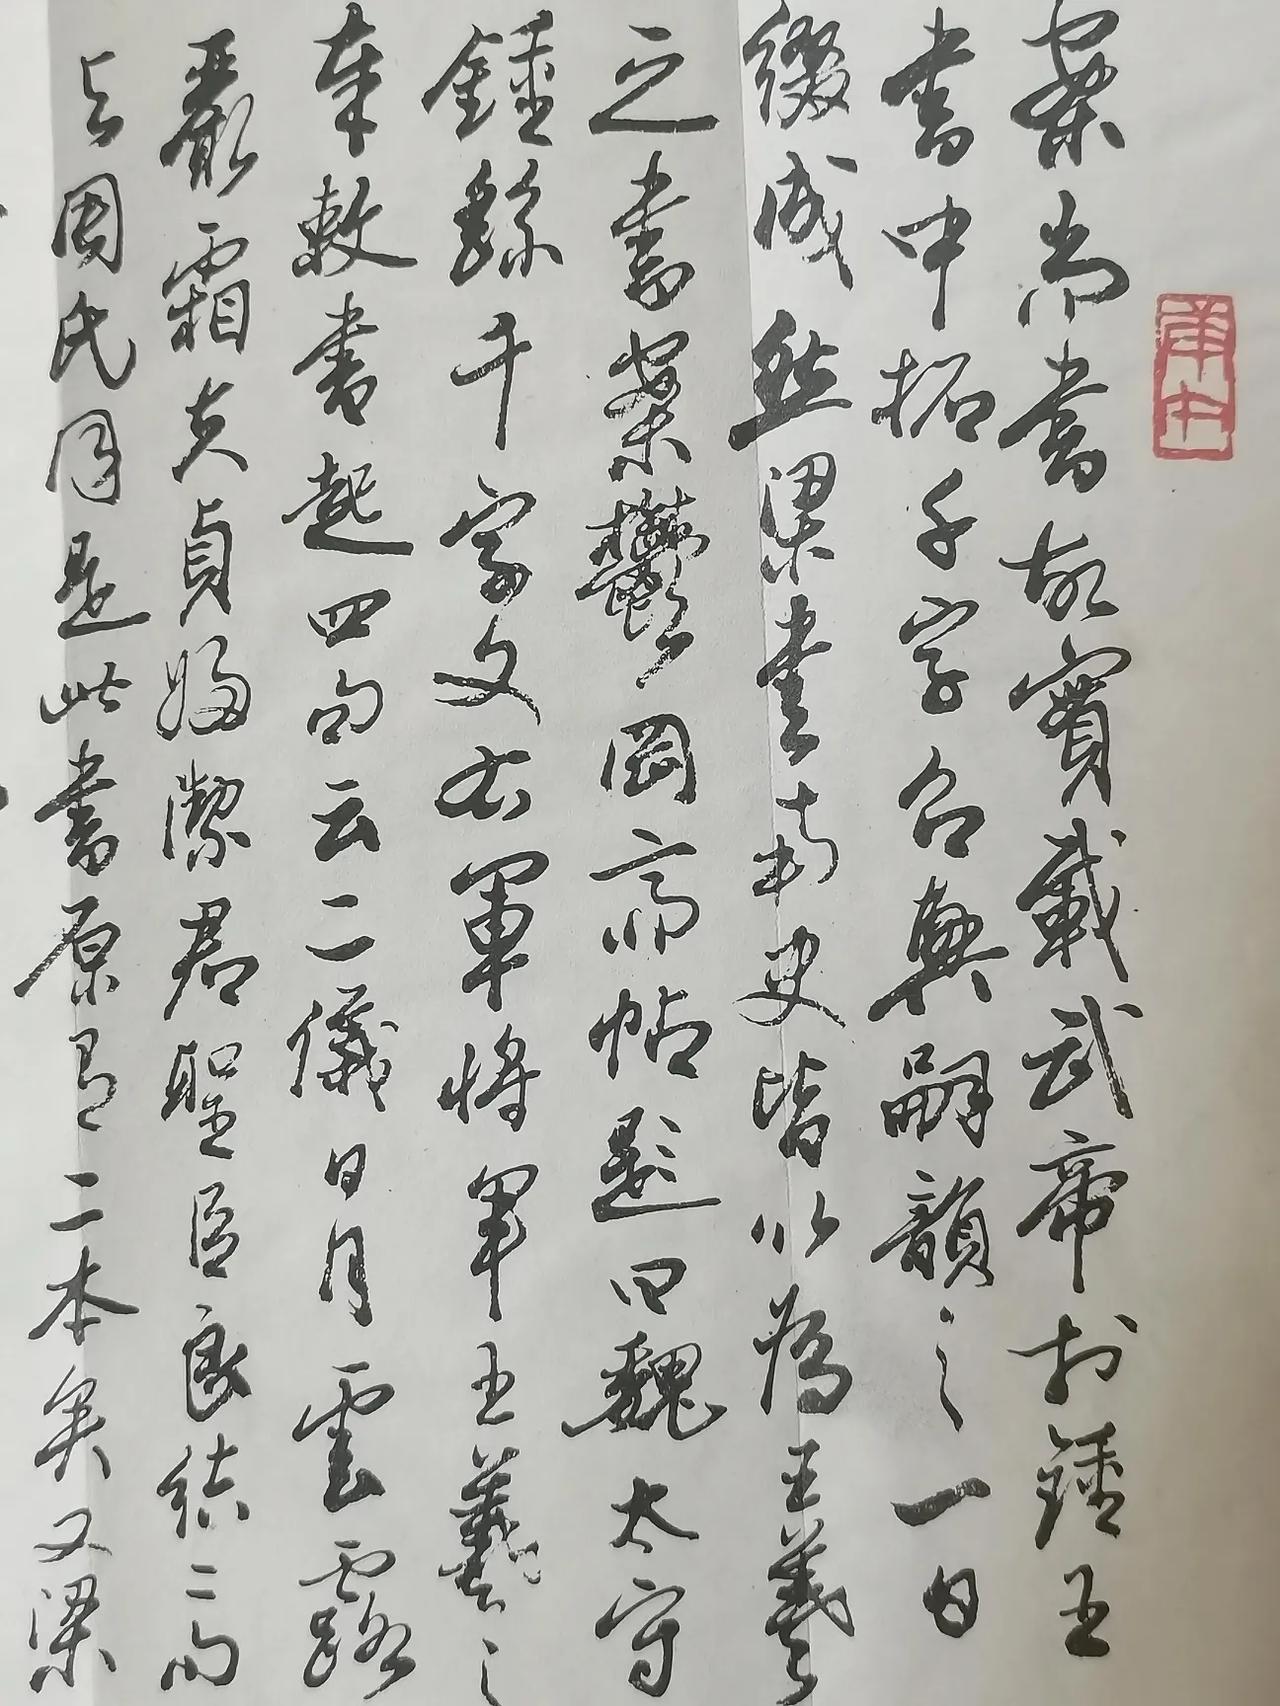 案尚書故實載武帝於鍾王
書中拓千字召興嗣韻之一日
綴成然梁書南史皆以為王羲
之書案鬱岡齋帖題曰魏太守
鍾繇千字文右軍將軍王羲之
奉敕書起四句云二儀日月雲露
嚴霜夫貞婦潔君聖臣良結二句
与周氏同是此書原有二本矣又梁